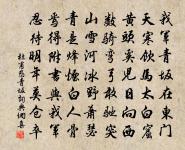 我軍青坂在東門
天寒飲馬太白窟
黃頭奚兒日向西
數騎彎弓敢馳突
山雪河冰野蕭瑟
青是烽煙白人骨
焉得附書與我軍
忍待明年莫倉卒
杜甫悲青坂詞典網